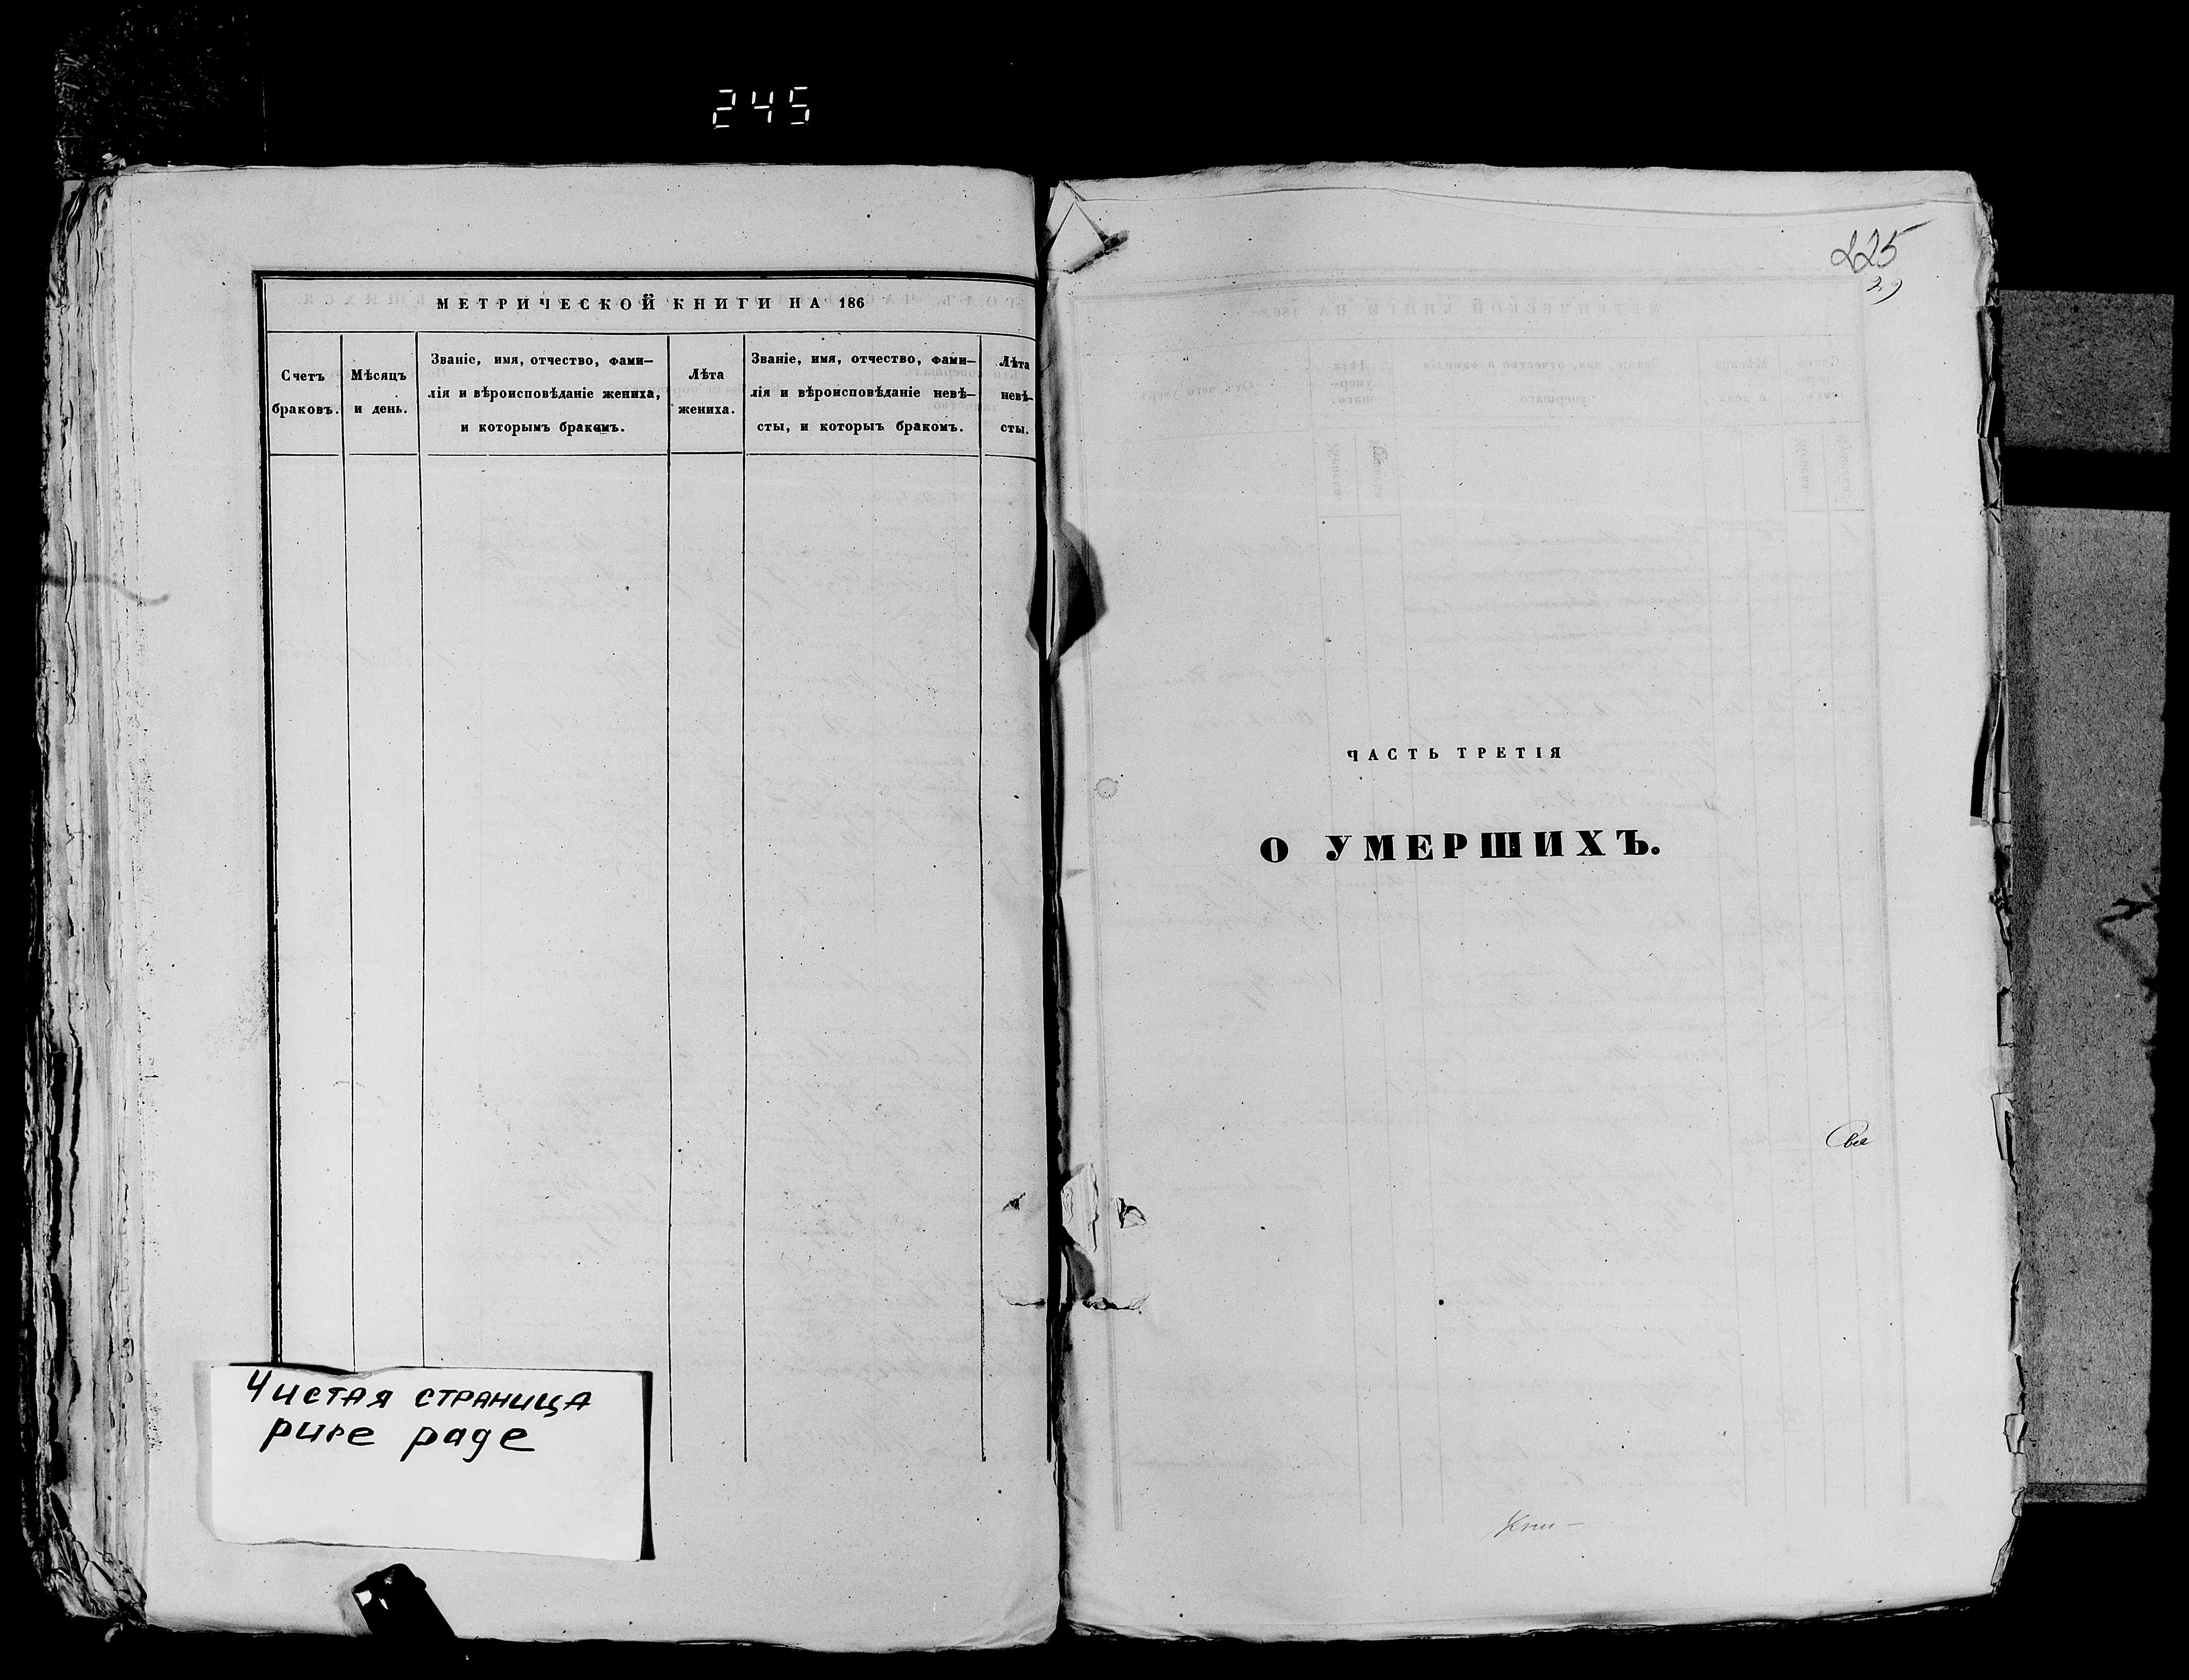 245
МЕТРИЧЕСКОЙ КНИГИ НА 186
Счетъ
браковъ.
Мѣсяцъ
и день.
Званіе, имя, отчество, фами—
лія и вѣроисповѣданіе жениха,
и которымъ бракомъ.
Лѣта
жениха.
Званіе, имя, отчество, фами—
лія и вѣроисповѣданіе невѣ—
сты, и которыъ бракомъ.
Лѣта
невѣ-
сты.
Чистая страница
pure page
225
29
ЧАСТЬ ТРЕТІЯ
О УМЕРШИХЪ.
Кни—